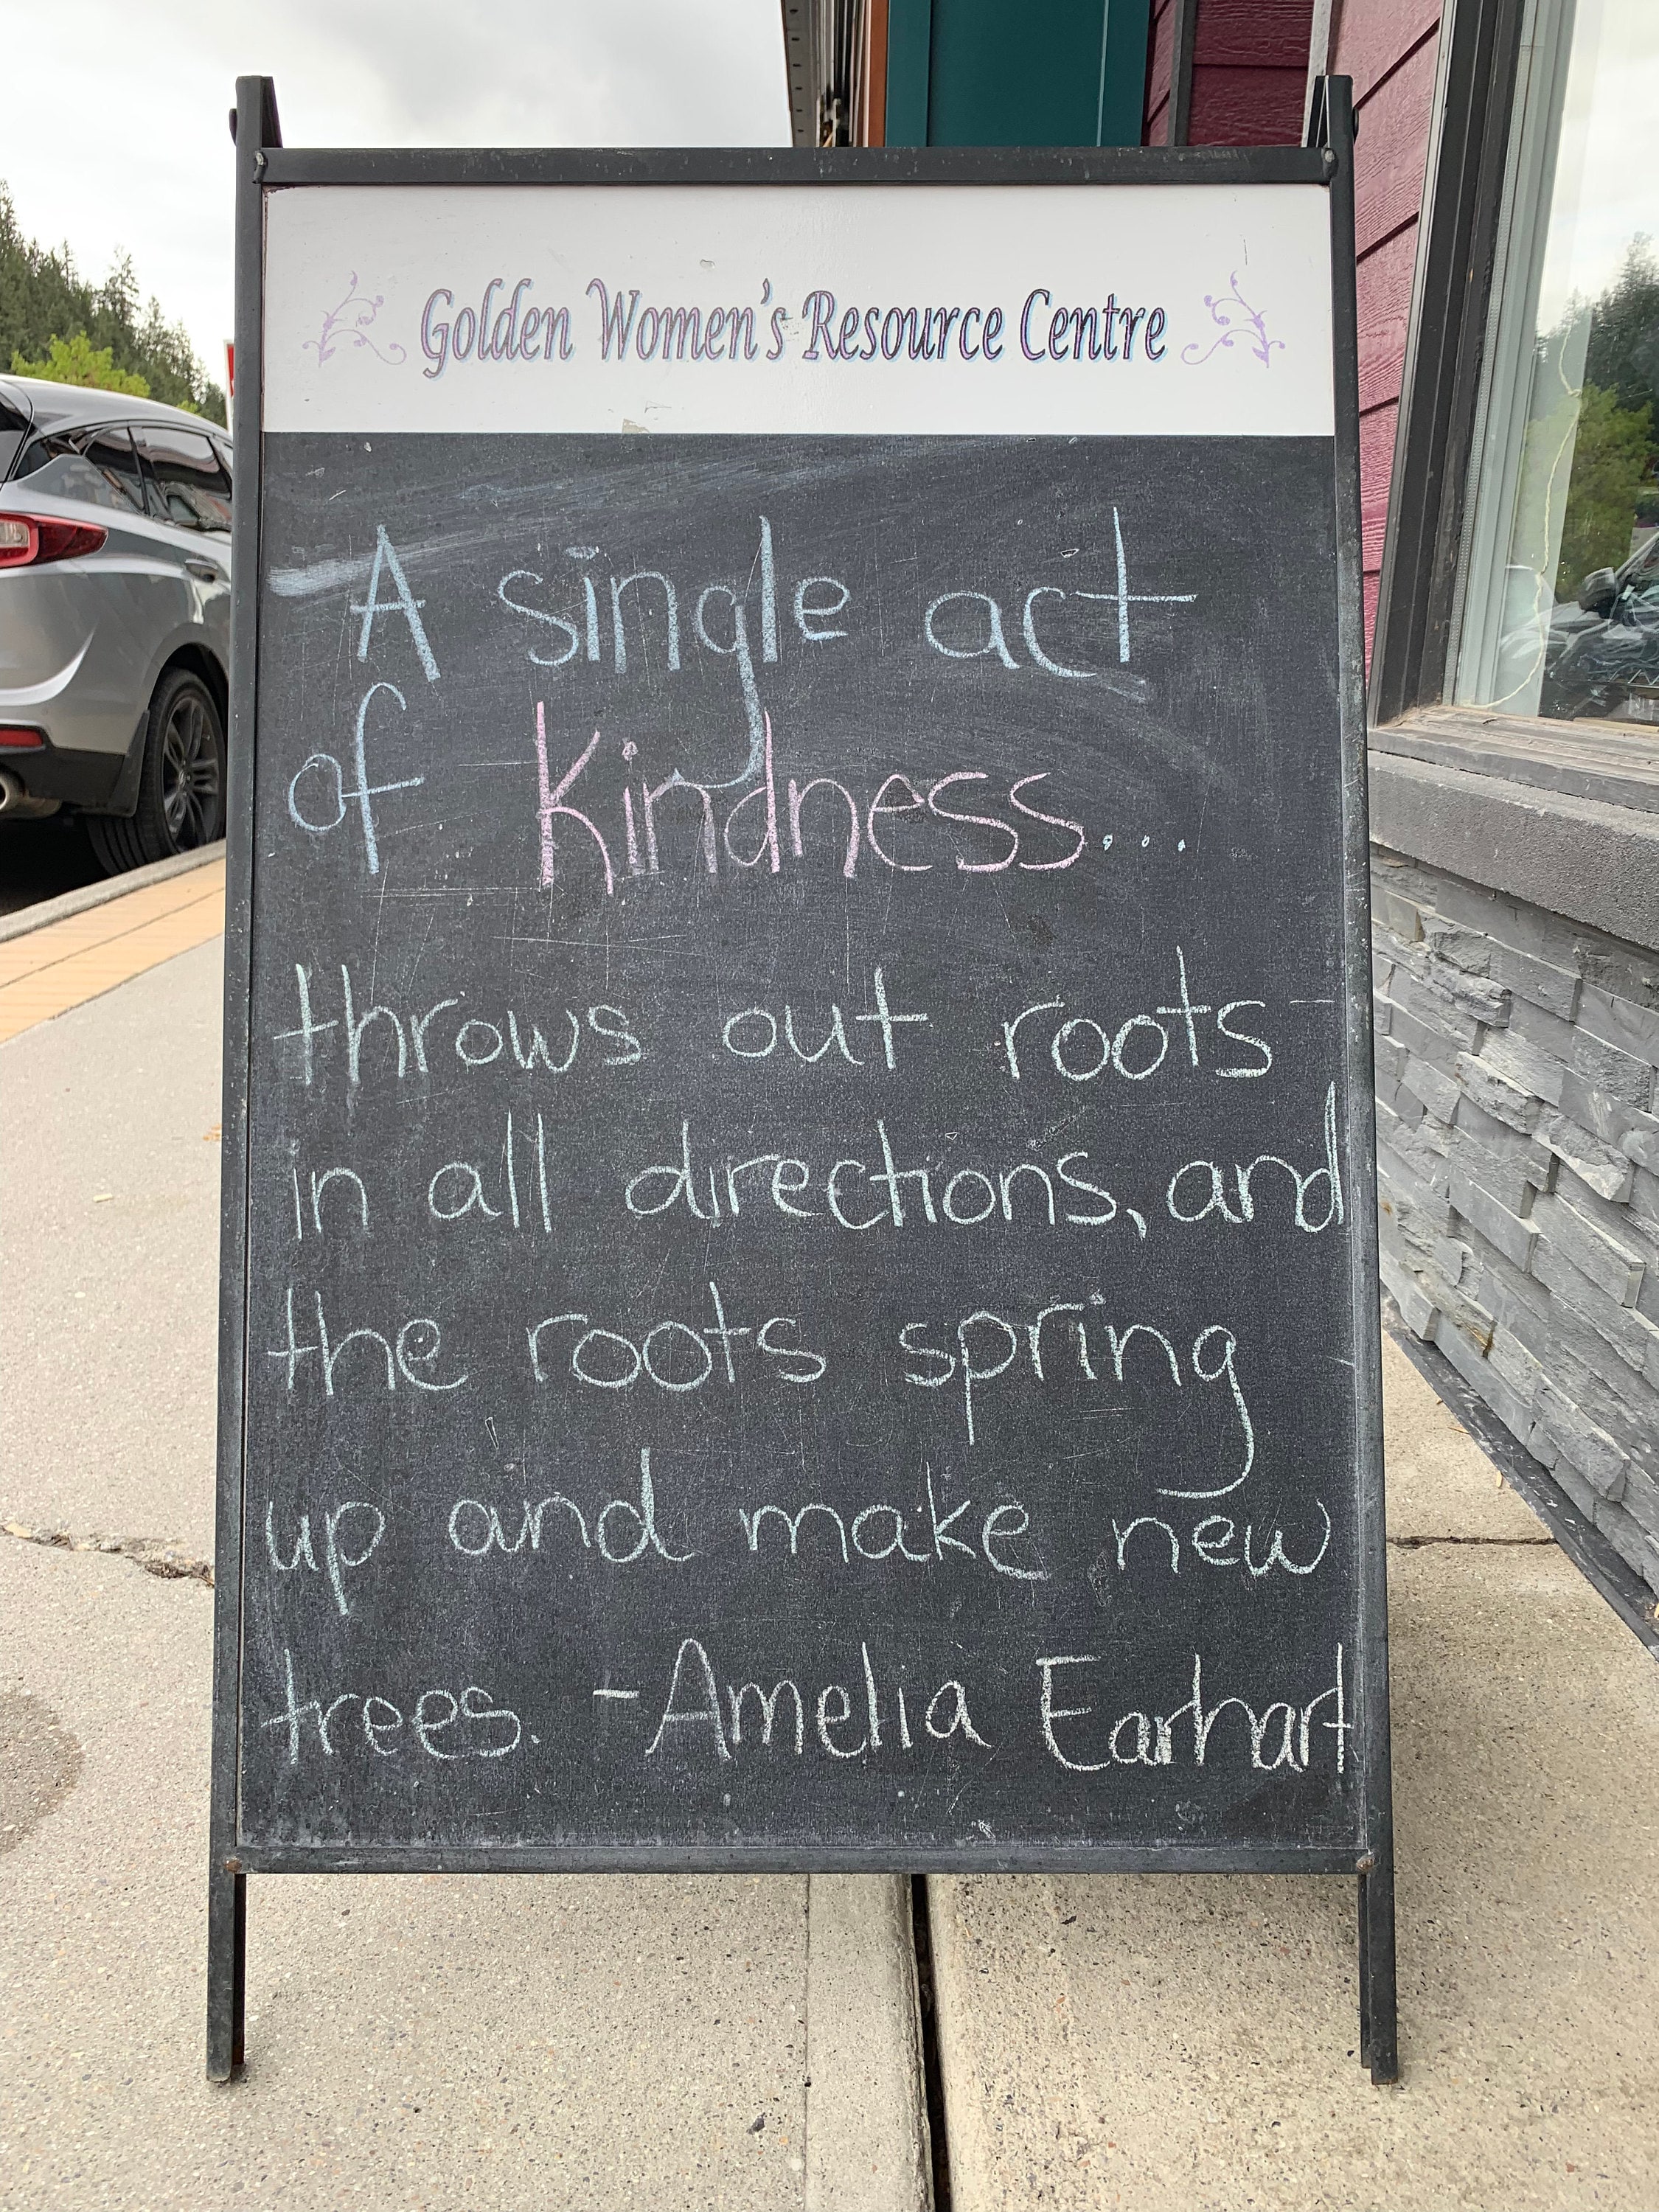 Golden Women's Resource Centre
A single act
of Kindness...
throws out roots
in all directions, and
the roots spring
up and make new
trees. -Amelia Earhart